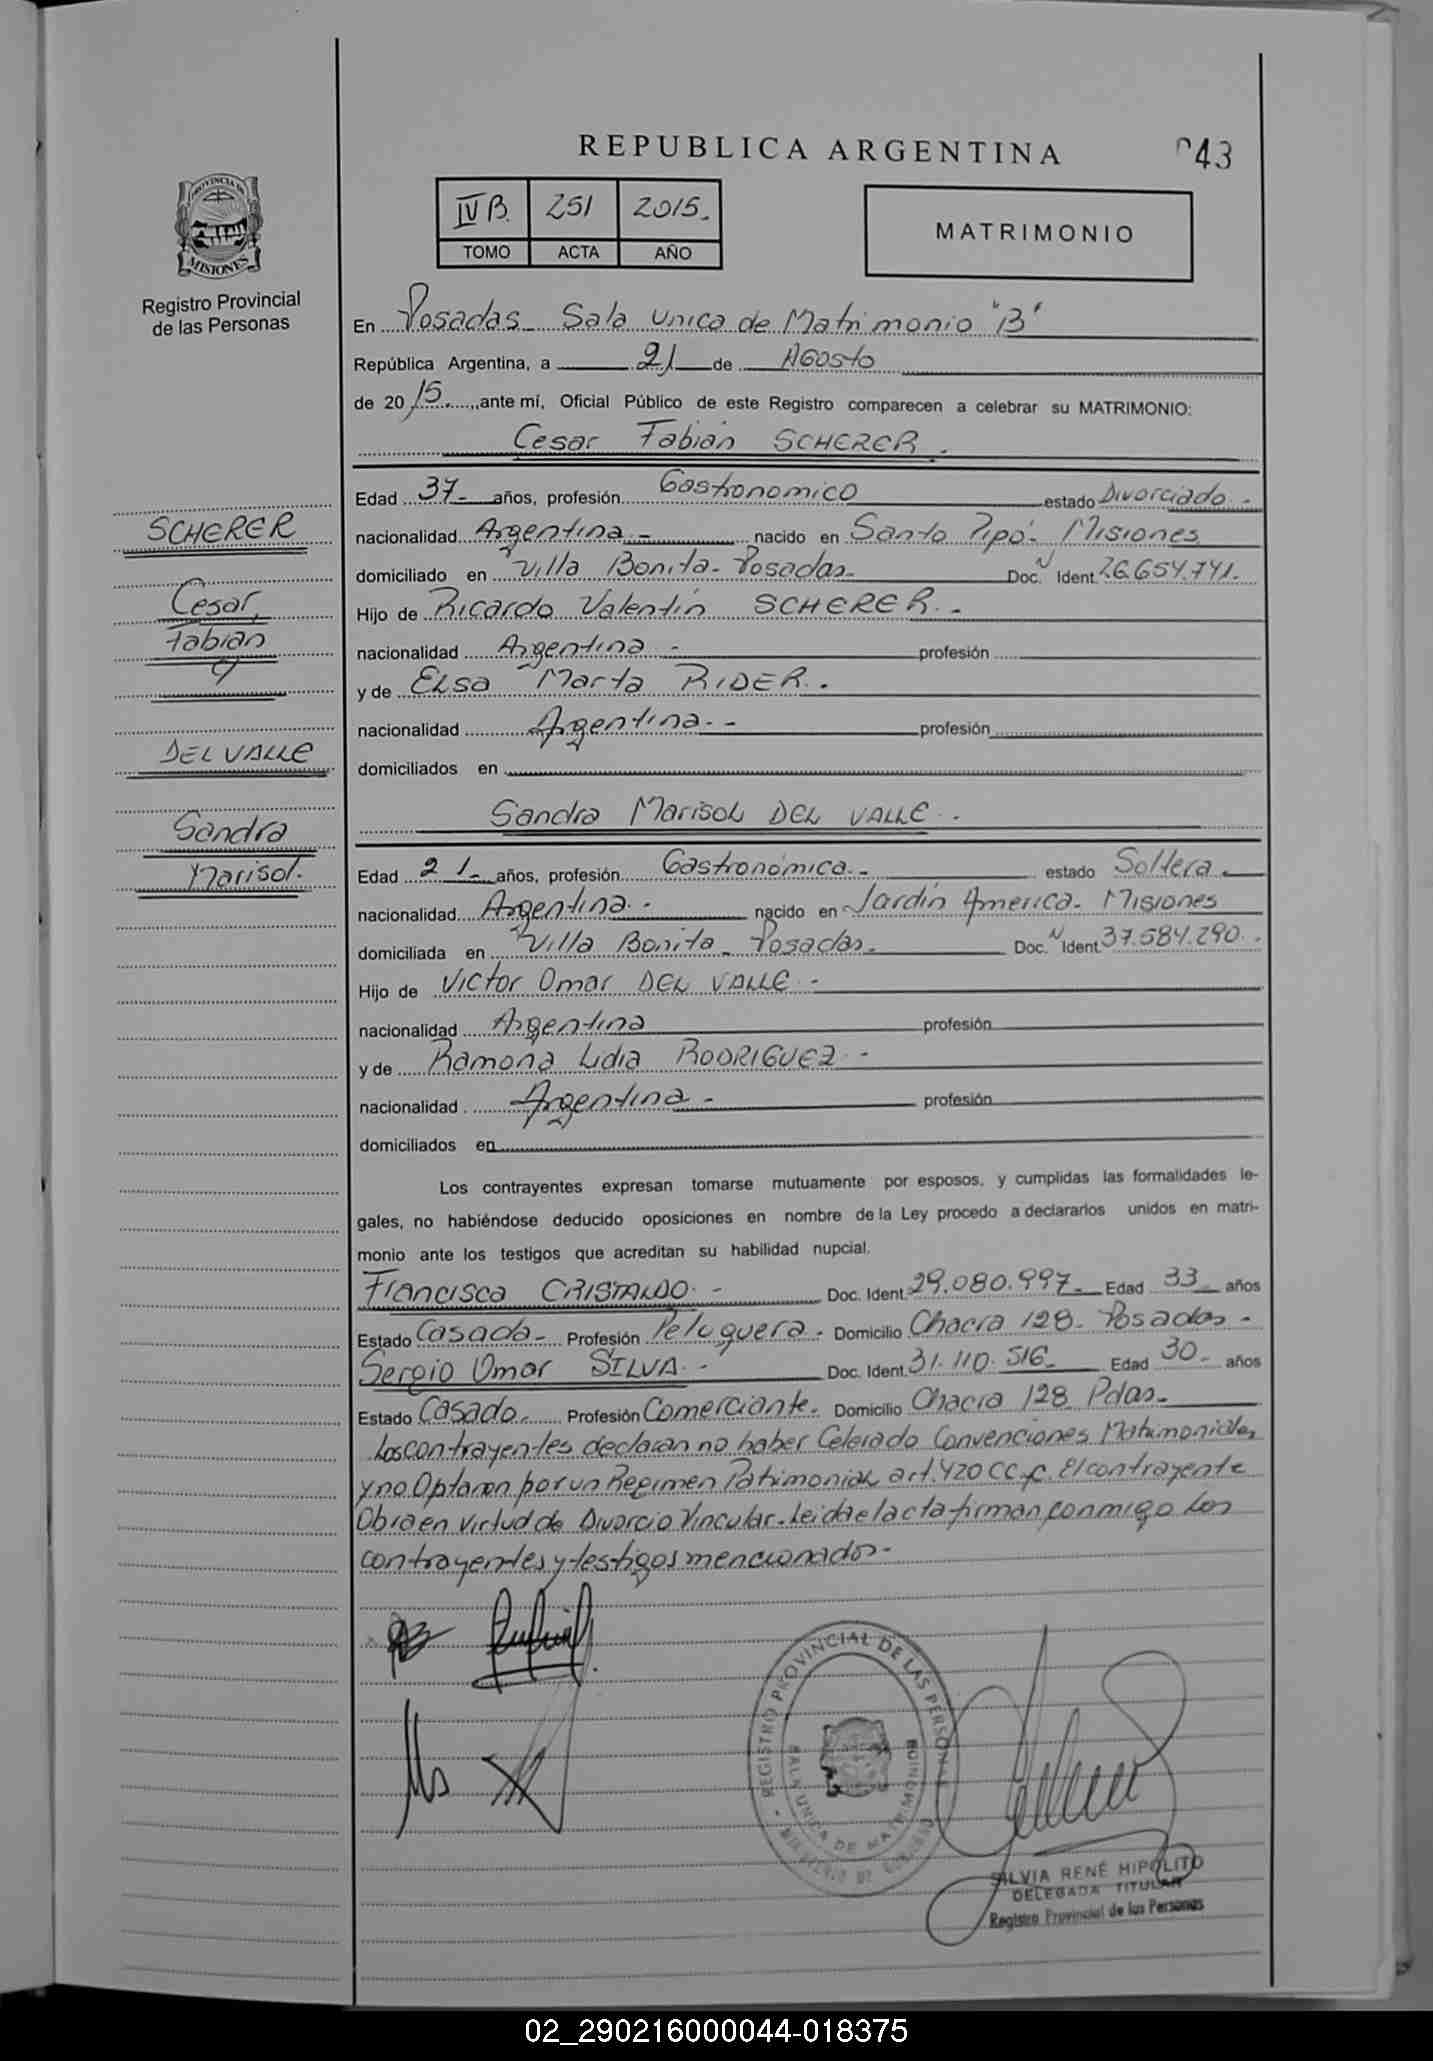 REPUBLICA ARGENTINA
043
IV B. 251 2015.
TOMO ACTA AÑO
MATRIMONIO
PROVINCIA DE
MISIONES
Registro Provincial
de las Personas
En Posadas Sala Unica de Matrimonio "B"
República Argentina, a 21 de Agosto
de 20 15. ,,ante mí, Oficial Público de este Registro comparecen a celebrar su MATRIMONIO:
Cesar Fabián SCHERER.
Edad 37- años, profesión Gastronomico estado Divorciado-
nacionalidad Argentina- nacido en Santo Pipó- Misiones
domiciliado en Villa Bonita- Posadas- Doc. N Ident. 26.654.741.
Hijo de Ricardo Valentín SCHERER.-
nacionalidad Argentina - profesión
y de Elsa Marta RIDER.
nacionalidad Argentina.- profesión
domiciliados en
Sandra Marisol DEL VALLE.-
Edad 21- años, profesión Gastronómica.- estado Soltera.
nacionalidad Argentina.- nacido en Jardín America- Misiones
domiciliada en Villa Bonita- Posadas- Doc. N Ident. 37.584.290.-
Hijo de Victor Omar DEL VALLE.-
nacionalidad Argentina profesión
y de Ramona Lidia RODRIGUEZ.-
nacionalidad Argentina- profesión
domiciliados en
Los contrayentes expresan tomarse mutuamente por esposos, y cumplidas las formalidades le-
gales, no habiéndose deducido oposiciones en nombre de la Ley procedo a declararlos unidos en matri-
monio ante los testigos que acreditan su habilidad nupcial.
Francisca CRISTALDO.- Doc. Ident. 29.080.997- Edad 33 años
Estado Casada- Profesión Peluquera. Domicilio Chacra 128- Posadas-
Sergio Omar SILVA.- Doc. Ident. 31.110.516- Edad 30- años
Estado Casado. Profesión Comerciante. Domicilio Chacra 128 Pdas-
Los contrayentes declaran no haber Celerado Convenciones Matrimoniales
y no Optaron por un Regimen Patrimonial art. 420 CC y C. El contrayente
Obra en Virtud de Divorcio Vincular. Leida el acta firman conmigo los
contrayentes y testigos mencionados-
SCHERER
Cesar,
Fabian
c/
DEL VALLE
Sandra
Marisol.
REGISTRO PROVINCIAL DE LAS PERSONAS
SALA UNICA DE MATRIMONIO
MINISTERIO DE GOBIERNO
SILVIA RENÉ HIPOLITO
DELEGADA TITULAR
Registro Provincial de las Personas
02_290216000044-018375